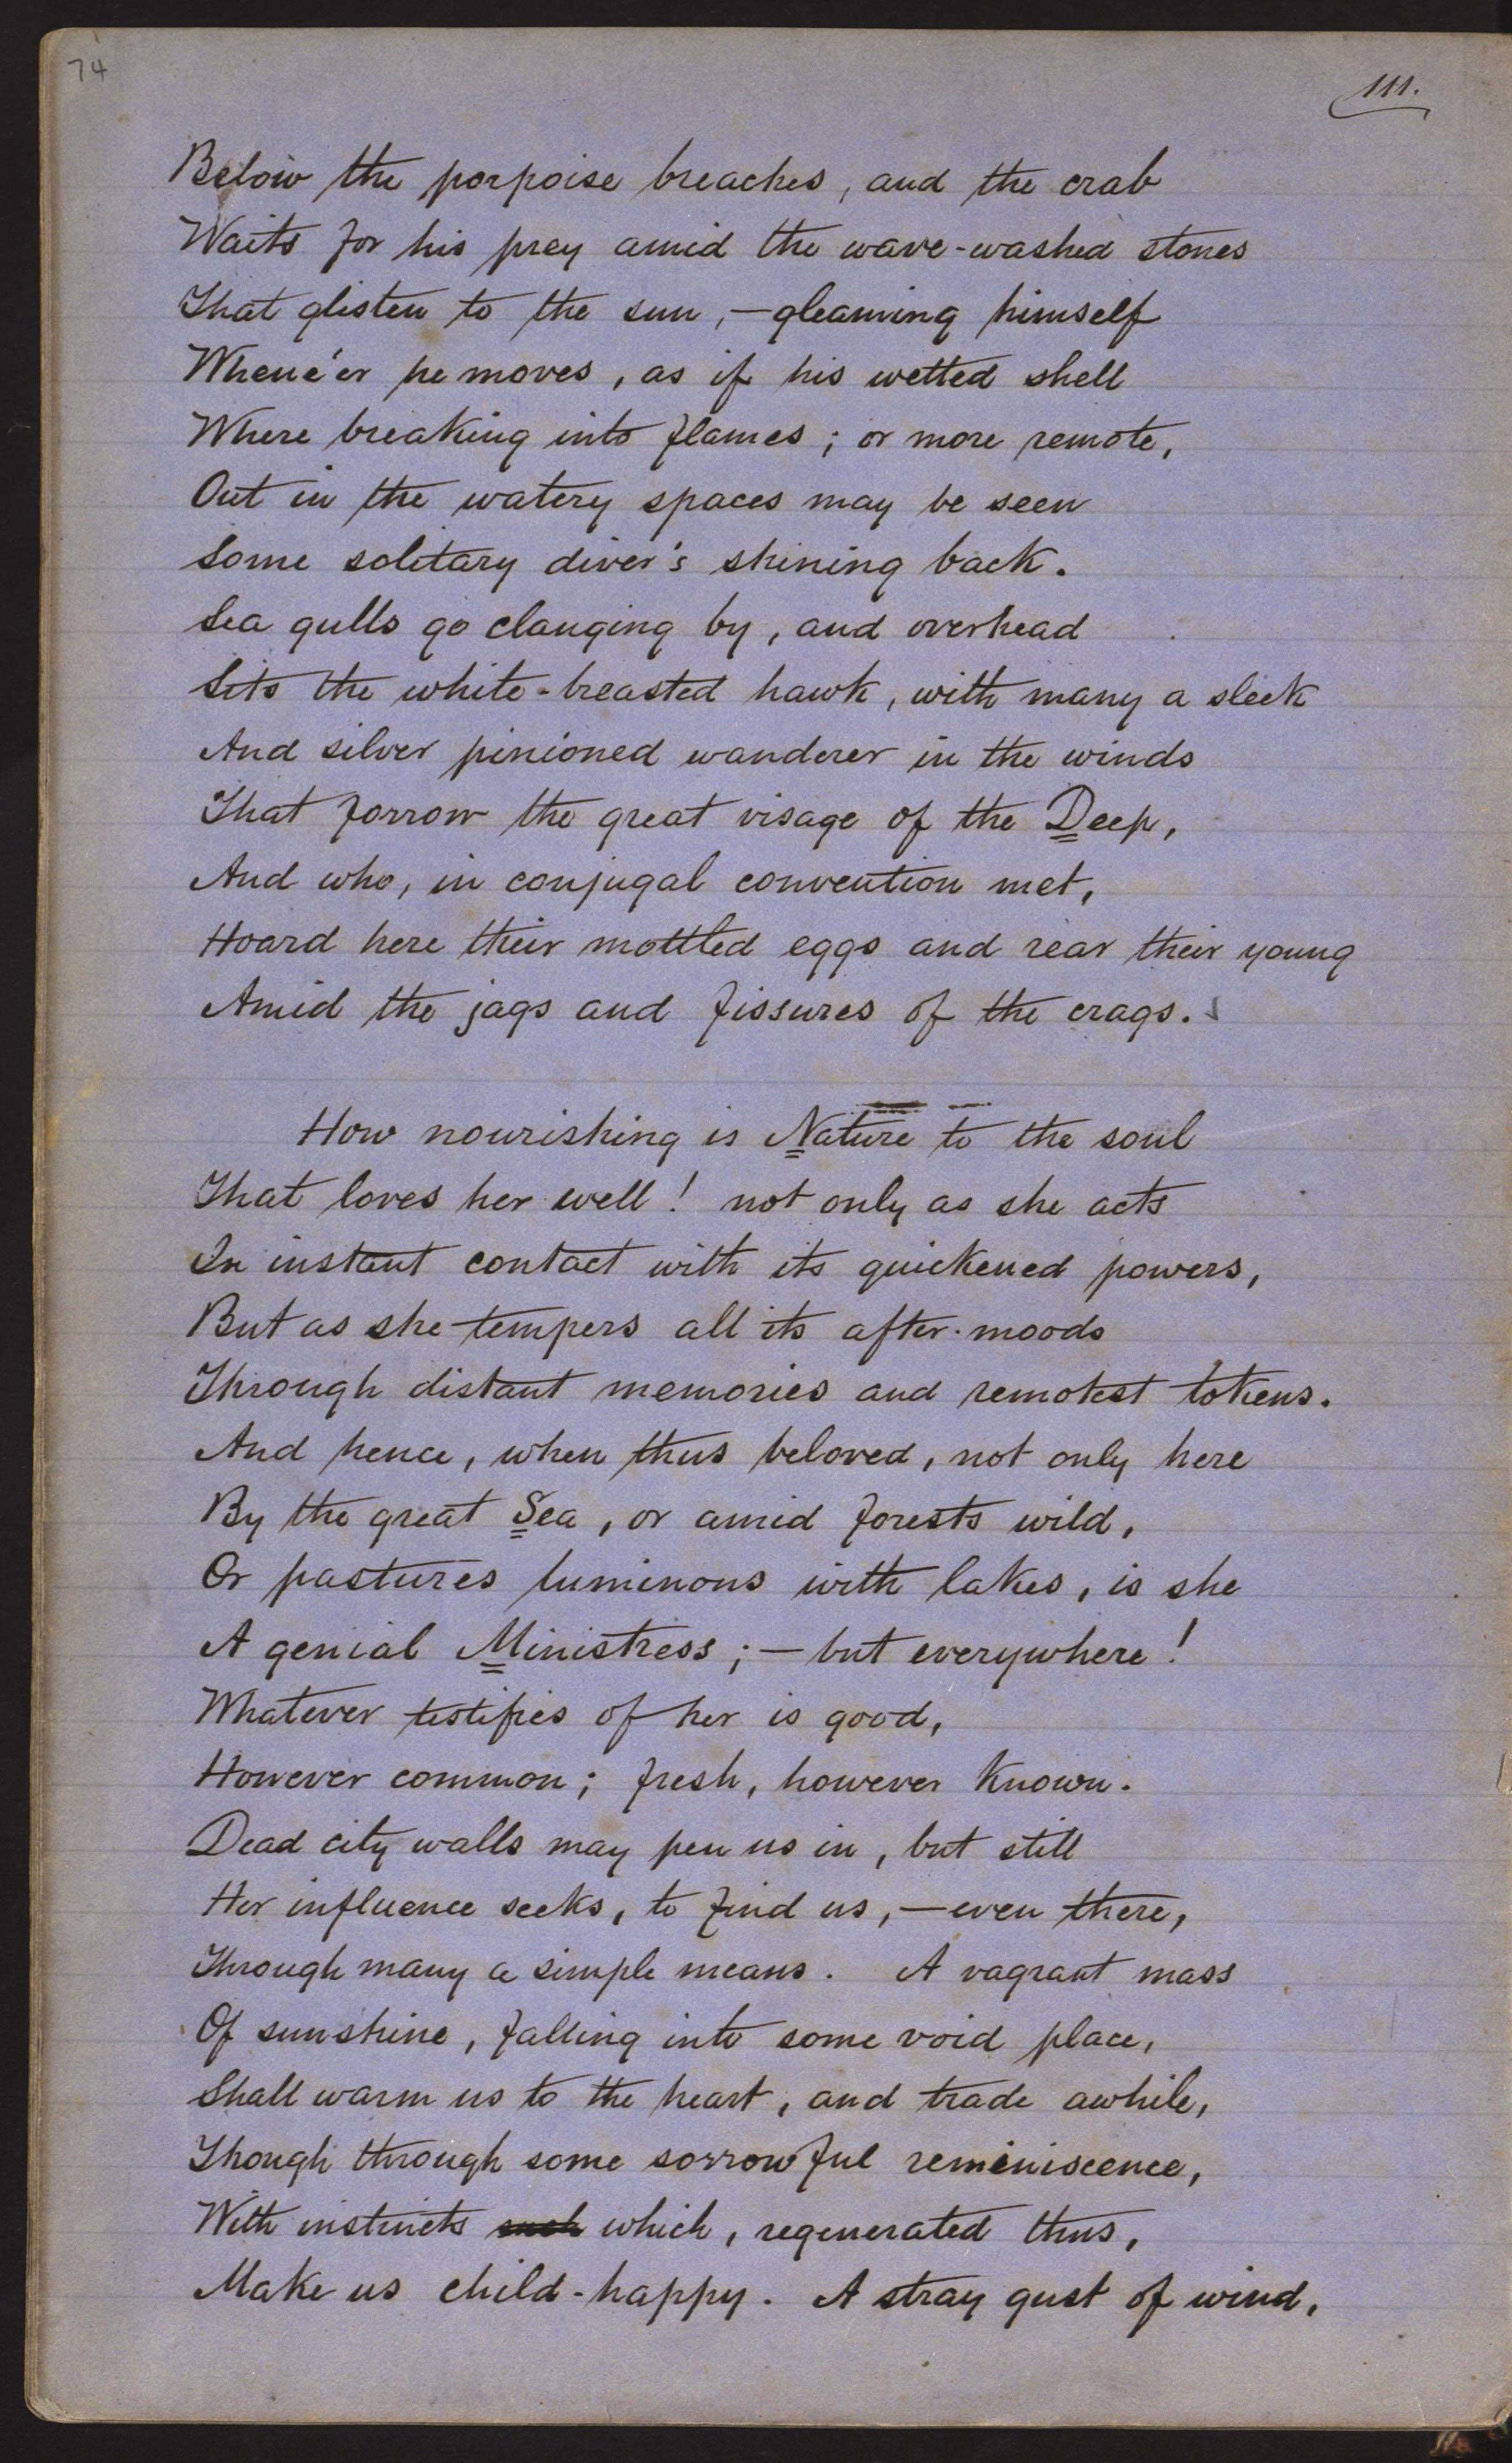 74
111.
Below the porpoise breaches, and the crab
Waits for his prey amid the wave-washed stones
That glisten to the sun,—gleaming himself
Whene'er he moves, as if his wetted shell
Where breaking into flames; or more remote,
Out in the watery spaces may be seen
Some solitary diver's shining back.
Sea gulls go clanging by, and overhead
Sits the white-breasted hawk, with many a sleek
And silver pinioned wanderer in the winds
That forrow the great visage of the Deep,
And who, in conjugal convention met,
Hoard here their mottled eggs and rear their young
Amid the jags and fissures of the crags.
How nourishing is Nature to the soul
That loves her well! not only as she acts
In instant contact with its quickened powers,
But as she tempers all its after-moods
Through distant memories and remotest tokens.
And hence, when thus beloved, not only here
By the great Sea, or amid forests wild,
Or pastures luminous with lakes, is she
A genial Ministress;—but everywhere!
Whatever testifies of her is good,
However common; fresh, however known.
Dead city walls may pen us in, but still
Her influence seeks, to find us,—even there,
Through many a simple means. A vagrant mass
Of sunshine, falling into some void place,
Shall warm us to the heart, and trade awhile,
Though through some sorrowful reminiscence,
With instincts such which, regenerated thus,
Make us child-happy. A stray gust of wind,